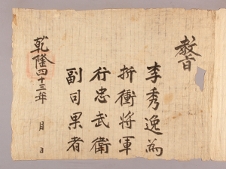 敎旨
李秀逸為
折衝將軍
行忠武衛
副司果者
乾隆四十三年 月 日